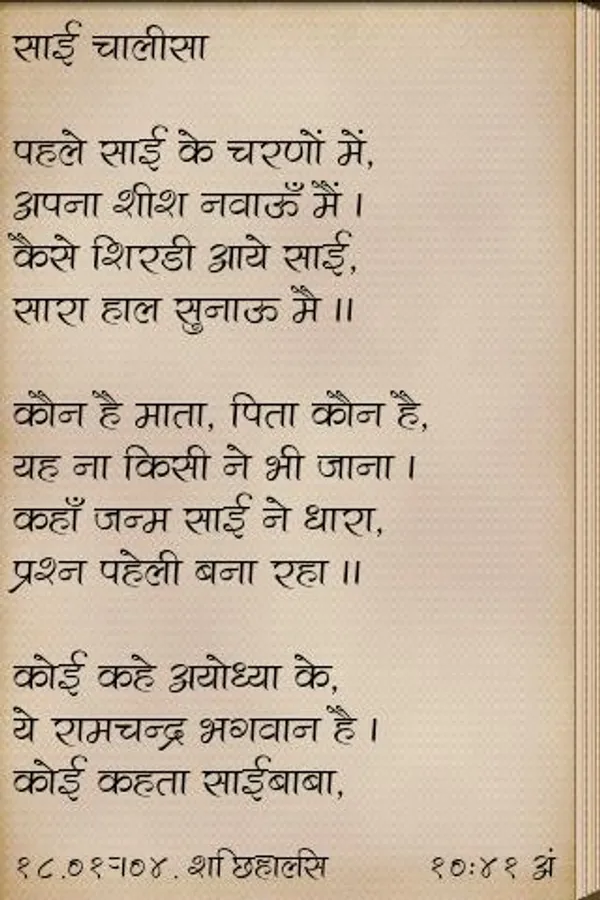 साई चालीसा
पहले साई के चरणों में,
अपना शीश नवाऊँ मैं ।
कैसे शिरडी आये साई,
सारा हाल सुनाऊ मै ।।
कौन है माता, पिता कौन है,
यह ना किसी ने भी जाना ।
कहाँ जन्म साई ने धारा,
प्रश्न पहेली बना रहा ।।
कोई कहे अयोध्या के,
ये रामचन्द्र भगवान है ।
कोई कहता साईबाबा,
१०:४१ अं